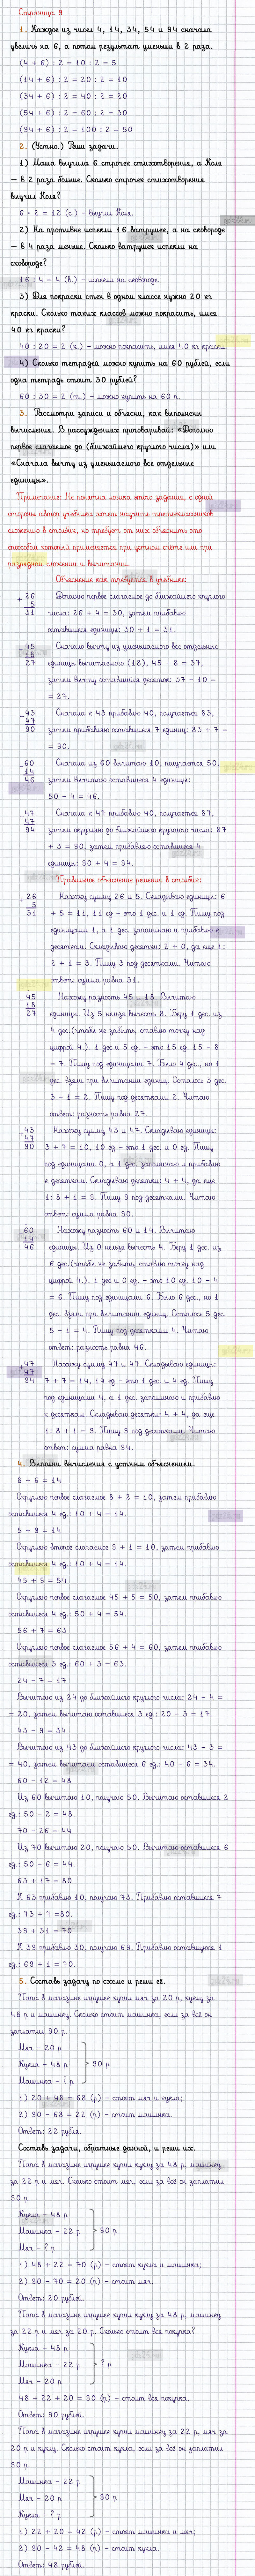 Страница 9
1. Каждое из чисел 4, 14, 34, 54 и 94 сначала
увеличь на 6, а потом результат уменьши в 2 раза.
(4 + 6) : 2 = 10 : 2 = 5
(14 + 6) : 2 = 20 : 2 = 10
(34 + 6) : 2 = 40 : 2 = 20
(54 + 6) : 2 = 60 : 2 = 30
(94 + 6) : 2 = 100 : 2 = 50
2. (Устно.) Реши задачи.
1) Маша выучила 6 строчек стихотворения, а Коля
– в 2 раза больше. Сколько строчек стихотворения
выучил Коля?
6 · 2 = 12 (с.) – выучил Коля.
2) На противне испекли 16 ватрушек, а на сковороде
– в 4 раза меньше. Сколько ватрушек испекли на
сковороде?
16 : 4 = 4 (в.) – испекли на сковороде.
3) Для покраски стен в одном классе нужно 20 кг
краски. Сколько таких классов можно покрасить, имея
40 кг краски?
40 : 20 = 2 (к.) – можно покрасить, имея 40 кг краски.
4) Сколько тетрадей можно купить на 60 рублей, если
одна тетрадь стоит 30 рублей?
60 : 30 = 2 (т.) – можно купить на 60 р.
3. Рассмотри записи и объясни, как выполнены
вычисления. В рассуждениях проговаривай: «Дополню
первое слагаемое до (ближайшего круглого числа)» или
«Сначала вычту из уменьшаемого все отдельные
единицы».
Примечание: Не понятна логика этого задания, с одной
стороны автор учебника хочет научить третьеклассников
сложению в столбик, но требует от них объяснить это
способом который применяется при устном счёте или при
разрядной сложении и вычитании.
Объяснение как требуется в учебнике:
+ 26
5
31
Дополню первое слагаемое до ближайшего круглого
числа: 26 + 4 = 30, затем прибавлю
оставшиеся единицы: 30 + 1 = 31.
- 45
18
27
Сначала вычту из уменьшаемого все отдельные
единицы вычитаемого (18), 45 – 8 = 37,
затем вычту оставшийся десяток: 37 – 10 =
= 27.
+ 43
47
90
Сначала к 43 прибавлю 40, получается 83,
затем прибавляю оставшиеся 7 единиц: 83 + 7 =
= 90.
- 60
14
46
Сначала из 60 вычитаю 10, получается 50,
затем вычитаю оставшиеся 4 единицы:
50 – 4 = 46.
+ 47
47
94
Сначала к 47 прибавлю 40, получается 87,
затем округляю до ближайшего круглого числа: 87
+ 3 = 90, затем прибавляю оставшиеся 4
единицы: 90 + 4 = 94.
Правильное объяснение решения в столбик:
+ 26
5
31
Нахожу сумму 26 и 5. Складываю единицы: 6
+ 5 = 11, 11 ед – это 1 дес. и 1 ед. Пишу под
единицами 1, а 1 дес. запоминаю и прибавлю к
десяткам. Складываю десятки: 2 + 0, да еще 1:
2 + 1 = 3. Пишу 3 под десятками. Читаю
ответ: сумма равна 31.
- 45
18
27
Нахожу разность 45 и 18. Вычитаю
единицы. Из 5 нельзя вычесть 8. Беру 1 дес. из
4 дес. (чтобы не забыть, ставлю точку над
цифрой 4.). 1 дес и 5 ед. – это 15 ед. 15 – 8
= 7. Пишу под единицами 7. Было 4 дес., но 1
дес. взяли при вычитании единиц. Осталось 3 дес.
3 – 1 = 2. Пишу под десятками 2. Читаю
ответ: разность равна 27.
+ 43
47
90
Нахожу сумму 43 и 47. Складываю единицы:
3 + 7 = 10, 10 ед – это 1 дес. и 0 ед. Пишу
под единицами 0, а 1 дес. запоминаю и прибавлю
к десяткам. Складываю десятки: 4 + 4, да еще
1: 8 + 1 = 9. Пишу 9 под десятками. Читаю
ответ: сумма равна 90.
- 60
14
46
Нахожу разность 60 и 14. Вычитаю
единицы. Из 0 нельзя вычесть 4. Беру 1 дес. из
6 дес. (чтобы не забыть, ставлю точку над
цифрой 4.). 1 дес и 0 ед. – это 10 ед. 10 – 4
= 6. Пишу под единицами 6. Было 6 дес., но 1
дес. взяли при вычитании единиц. Осталось 5 дес.
5 – 1 = 4. Пишу под десятками 4. Читаю
ответ: разность равна 46.
+ 47
47
94
Нахожу сумму 47 и 47. Складываю единицы:
7 + 7 = 14, 14 ед – это 1 дес. и 4 ед. Пишу
под единицами 4, а 1 дес. запоминаю и прибавлю
к десяткам. Складываю десятки: 4 + 4, да еще
1: 8 + 1 = 9. Пишу 9 под десятками. Читаю
ответ: сумма равна 94.
4. Выполни вычисления с устным объяснением.
8 + 6 = 14
Округляю первое слагаемое 8 + 2 = 10, затем прибавлю
оставшиеся 4 ед.: 10 + 4 = 14.
5 + 9 = 14
Округляю второе слагаемое 9 + 1 = 10, затем прибавлю
оставшиеся 4 ед.: 10 + 4 = 14.
45 + 9 = 54
Округляю первое слагаемое 45 + 5 = 50, затем прибавлю
оставшиеся 4 ед.: 50 + 4 = 54.
56 + 7 = 63
Округляю первое слагаемое 56 + 4 = 60, затем прибавлю
оставшиеся 3 ед.: 60 + 3 = 63.
24 – 7 = 17
Вычитаю из 24 до ближайшего круглого числа: 24 – 4 =
= 20, затем вычитаю оставшиеся 3 ед.: 20 – 3 = 17.
43 – 9 = 34
Вычитаю из 43 до ближайшего круглого числа: 43 – 3 =
= 40, затем вычитаем оставшиеся 6 ед.: 40 – 6 = 34.
60 – 12 = 48
Из 60 вычитаю 10, получаю 50. Вычитаю оставшиеся 2
ед.: 50 – 2 = 48.
70 – 26 = 44
Из 70 вычитаю 20, получаю 50. Вычитаю оставшиеся 6
ед.: 50 – 6 = 44.
63 + 17 = 80
К 63 прибавлю 10, получаю 73. Прибавлю оставшиеся 7
ед.: 73 + 7 =80.
39 + 31 = 70
К 39 прибавлю 30, получаю 69. Прибавлю оставшуюся 1
ед.: 69 + 1 = 70.
5. Составь задачу по схеме и реши её.
Папа в магазине игрушек купил мяч за 20 р., куклу за
48 р. и машинку. Сколько стоит машинка, если за всё он
заплатил 90 р.
Мяч – 20 р.
Кукла – 48 р. 90 р.
Машинка – ? р.
1) 20 + 48 = 68 (р.) – стоят мяч и кукла;
2) 90 – 68 = 22 (р.) – стоит машинка.
Ответ: 22 рубля.
Составь задачи, обратные данной, и реши их.
Папа в магазине игрушек купил куклу за 48 р., машинку
за 22 р. и мяч. Сколько стоит мяч, если за всё он заплатил
90 р.
Кукла – 48 р.
Машинка – 22 р. 90 р.
Мяч – ? р.
1) 48 + 22 = 70 (р.) – стоят кукла и машинка;
2) 90 – 70 = 20 (р.) – стоит мяч.
Ответ: 20 рублей.
Папа в магазине игрушек купил куклу за 48 р., машинку
за 22 р. и мяч за 20 р. Сколько стоит вся покупка?
Кукла – 48 р.
Машинка – 22 р. ? р.
Мяч – 20 р.
48 + 22 + 20 = 90 (р.) – стоит вся покупка.
Ответ: 90 рублей.
Папа в магазине игрушек купил машинку за 22 р., мяч за
20 р. и куклу. Сколько стоит кукла, если за всё он заплатил
90 р.
Машинка – 22 р.
Мяч – 20 р. 90 р.
Кукла – ? р.
1) 22 + 20 = 42 (р.) – стоят машинка и мяч;
2) 90 – 42 = 48 (р.) – стоит кукла.
Ответ: 48 рублей.